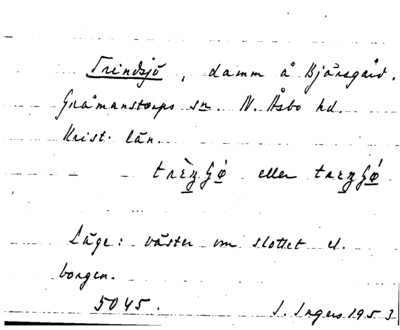 Trindsjö, damm å Bjärsgård.
Gråmanstorps sn. N. Åsbo hd.
Krist. län.
eller
Läge: väster om slottet el.
borgen.
5045. I. Ingers 1953